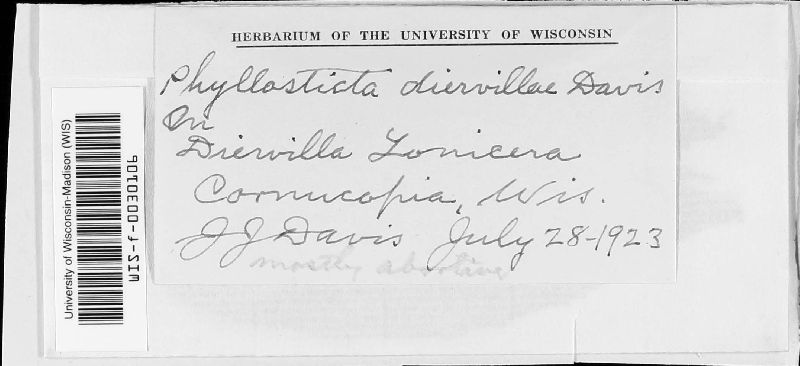 HERBARIUM OF THE UNIVERSITY OF WISCONSIN
Phyllosticta diervillae Davis
On
Diervilla Lonicera
Cornucopia, Wis.
JJ Davis July 28-1923
mostly abortive
University of Wisconsin-Madison (WIS)
WIS-f-0030106